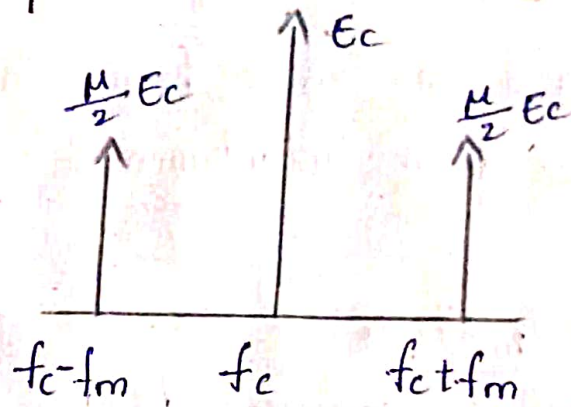 Ec
μ/2 Ec
μ/2 Ec
fc-fm fc fc+fm